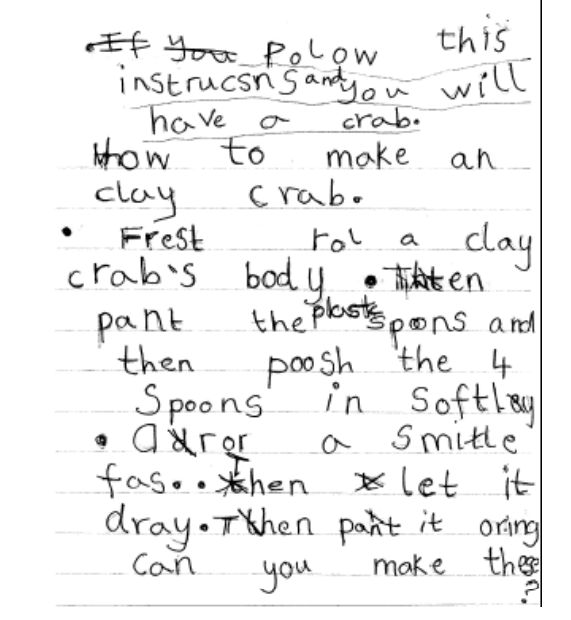 If you Polow this
instrucsns and you will
have a crab.
How to make an
clay crab.
• Frest rol a clay
crab's body • Then
pant the plastc spoons and
then poosh the 4
Spoons in Softley
• a dror a Smitle
fas.. Then let it
dray. Then pant it oring
Can you make these
?